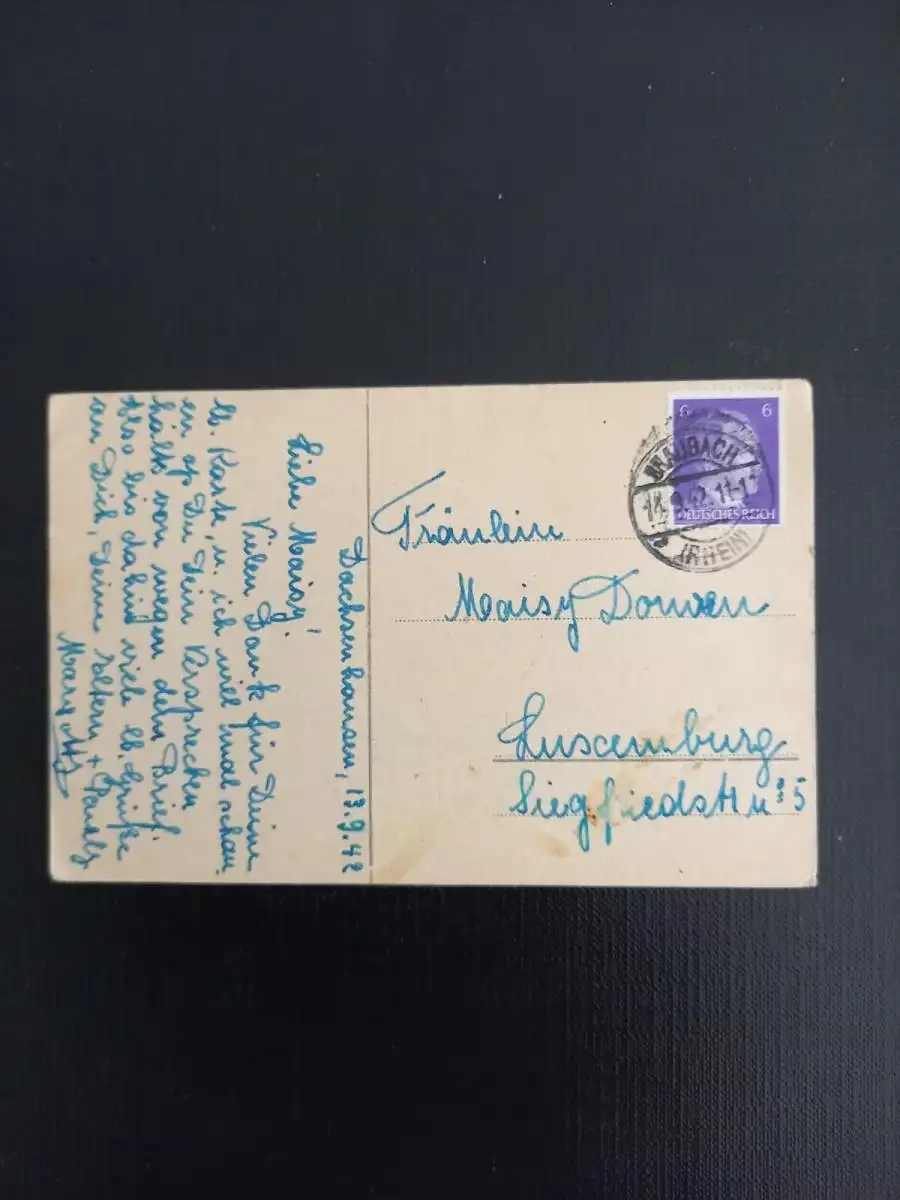 Dachsenhausen, 13.9.42
Liebe Maisy!
Vielen Dank für Deine
lb. Karte, u. ich will mal schau
en ob Du Dein Versprechen
hälts von wegen dem Brief.
Also bis dahin viele lb. Grüße
an Dich, Deine Eltern + Pauly
Mary
6 6
BRAUBACH
14.9.42.11-1
(RHEIN)
DEUTSCHES REICH
Fräulein
Maisy Donven
Luxemburg
Siegfriedstr 5